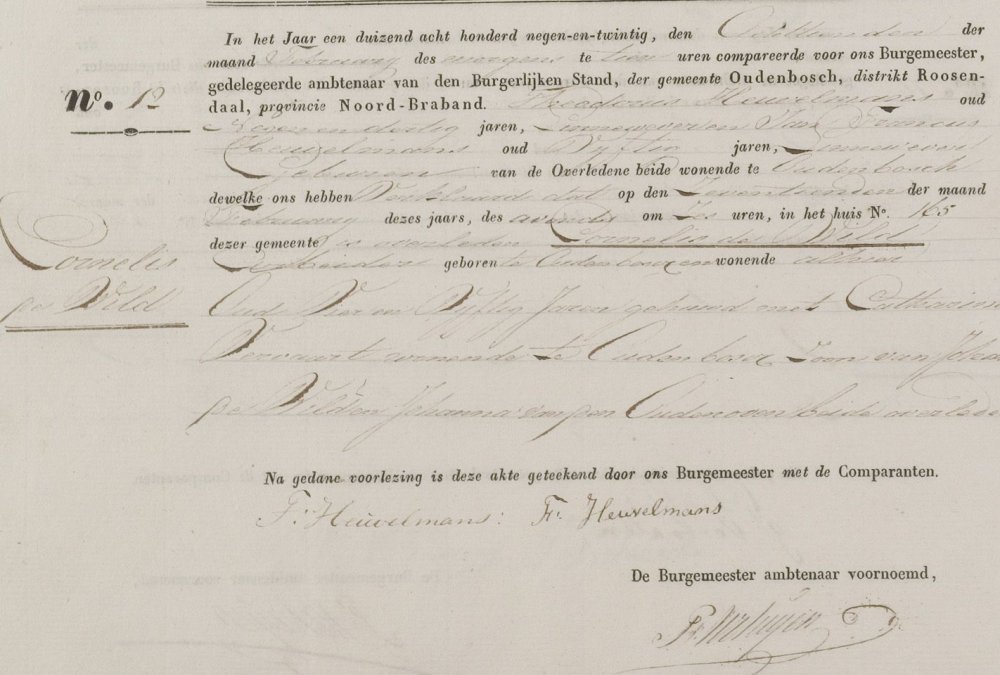 In het Jaar een duizend acht honderd negen-en-twintig, den Achttienden der
maand February des morgens te tien uren compareerde voor ons Burgemeester,
gedelegeerde ambtenaar van den Burgerlijken Stand, der gemeente Oudenbosch, distrikt Roosen-
N°. 12
daal, provincie Noord-Braband. Heuvelmans oud
en dertig jaren, Linnewever en Jan Francus
Heuvelmans oud Vyftig jaren, Linnewever
Gebuuren van de Overledene beide wonende te Oudenbosch
dewelke ons hebben Verklaard dat op den Zeventienden der maand
February dezes jaars, des avonds om Zes uren, in het huis N°. 165
dezer gemeente is overleden Cornelis de Wild
Cornelis
de Wild
Arbeider geboren te Oudenbosch en wonende alhier
Oud Vier en Vyftig Jaren gehuwd met Catharina
Vervaart wonende te Oudenbosch Zoon van Joha
de Wild en Johanna van den Oudenoven beide overlede
Na gedane voorlezing is deze akte geteekend door ons Burgemeester met de Comparanten.
T. Heuvelmans: Fr. Heuvelmans
De Burgemeester ambtenaar voornoemd,